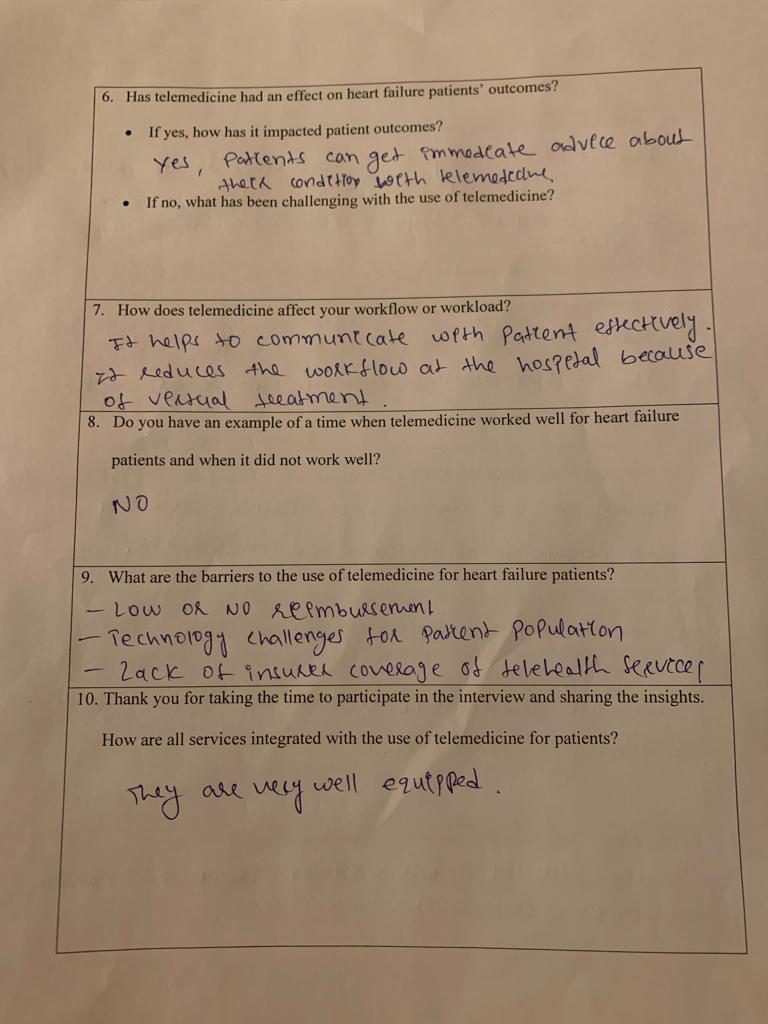 6. Has telemedicine had an effect on heart failure patients' outcomes?
• If yes, how has it impacted patient outcomes?
Yes, Patients can get immediate advice about
their condition with telemedicine.
• If no, what has been challenging with the use of telemedicine?
7. How does telemedicine affect your workflow or workload?
It helps to communicate with Patient effectively.
It reduces the workflow at the hospital because
of virtual treatment.
8. Do you have an example of a time when telemedicine worked well for heart failure
patients and when it did not work well?
NO
9. What are the barriers to the use of telemedicine for heart failure patients?
- Low or NO reimbursement
- Technology challenges for patient population
- Lack of insurer coverage of telehealth services
10. Thank you for taking the time to participate in the interview and sharing the insights.
How are all services integrated with the use of telemedicine for patients?
They are very well equipped.